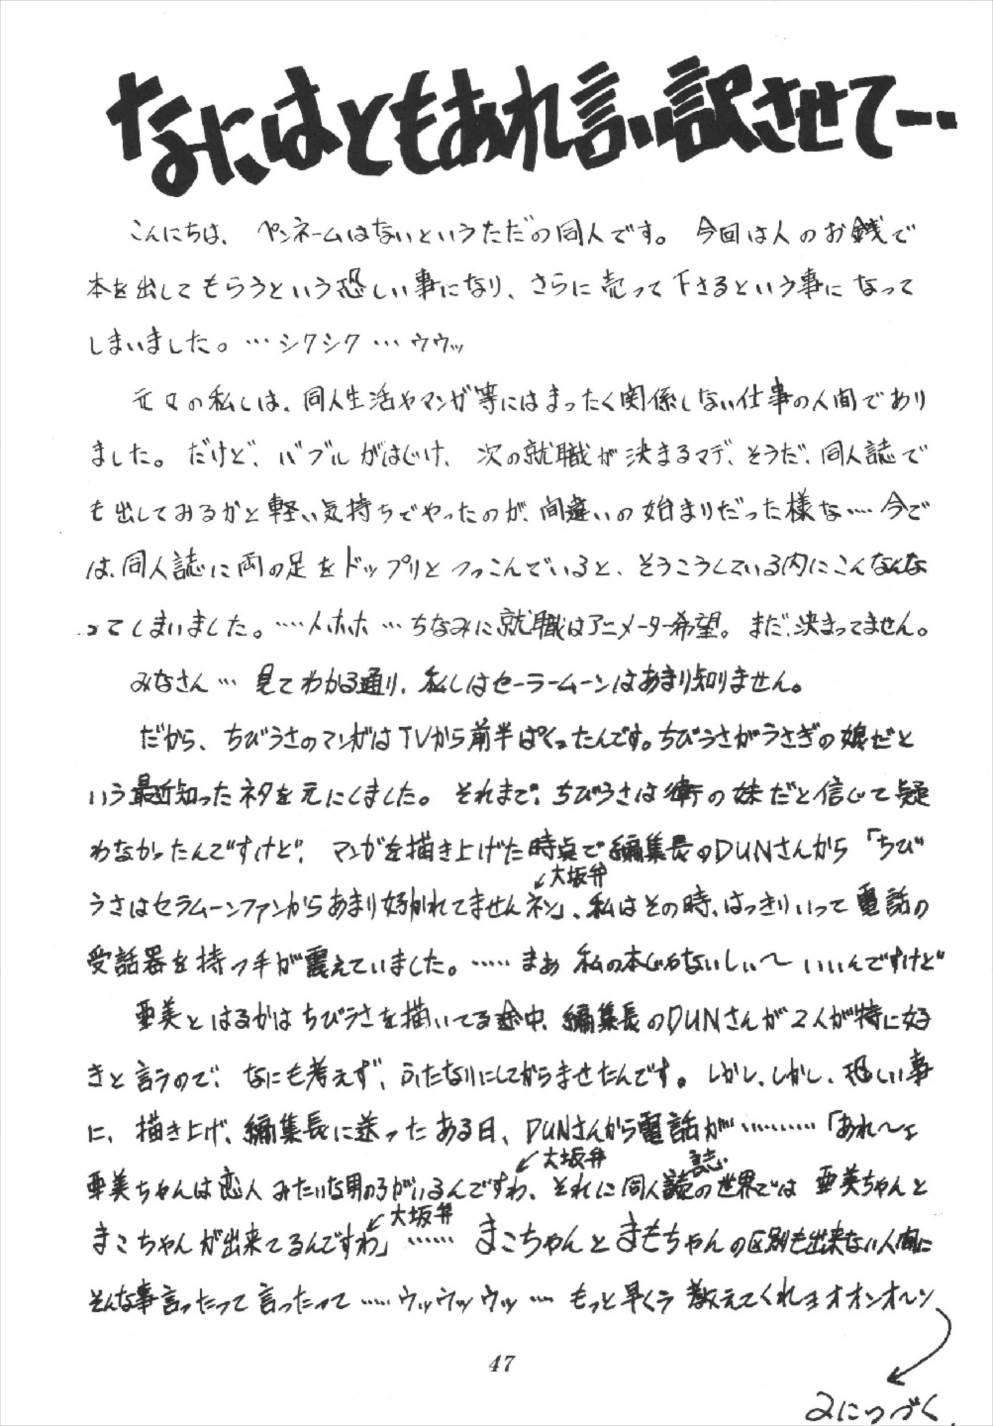 なにはともあれ言い訳させて…
こんにちは、ペンネームはないというただの同人です。今回は人のお銭で
本を出してもらうという恐しい事になり、さらに売って下さるという事になって
しまいました。…シクシク…ウウッ
元々の私しは、同人生活やマンガ等にはまったく関係しない仕事の人間であり
ました。だけど、バブルがはじけ、次の就職が決まるマデ、そうだ、同人誌で
も出してみるかと軽い気持ちでやったのが、間違いの始まりだった様な…今で
は、同人誌に両の足をドップリとつっこんでいると、そうこうしている内にこんなんな
ってしまいました。……ホホ…ちなみに就職はアニメーター希望。まだ、決まってません。
みなさん…見てわかる通り、私しはセーラームーンはあまり知りません。
だから、ちびうさのマンガはTVから前半ぱくったんです。ちびうさがうさぎの娘だと
いう最近知ったネタを元にしました。それまで、ちびうさは衛の妹だと信じて疑
わなかったんですけど、マンガを描き上げた時点で編集長のDUNさんから「ちび
大坂弁
うさはセラムーンファンからあまり好かれてませんネン」、私はその時、はっきりいって電話の
受話器を持つ手が震えていました。……まぁ私の本じゃないしぃ〜いいんですけど
亜美とはるかはちびうさを描いてる途中、編集長のDUNさんが2人が特に好
きと言うので、なにも考えず、ふたなりにしてからませたんです。しかし、しかし、恐しい事
に、描き上げ、編集長に送ったある日、DUNさんから電話が…………「あれ〜ェ
大坂弁
誌
亜美ちゃんは恋人みたいな男の子がいるんですわ、それに同人の世界では亜美ちゃんと
大坂弁
まこちゃんが出来てるんですわ」……まこちゃんとまもちゃんの区別も出来ない人間に
そんな事言ったって言ったって……ウッウッウッ…もっと早くぅ教えてくれョオオンオ〜ン
47
2につづく